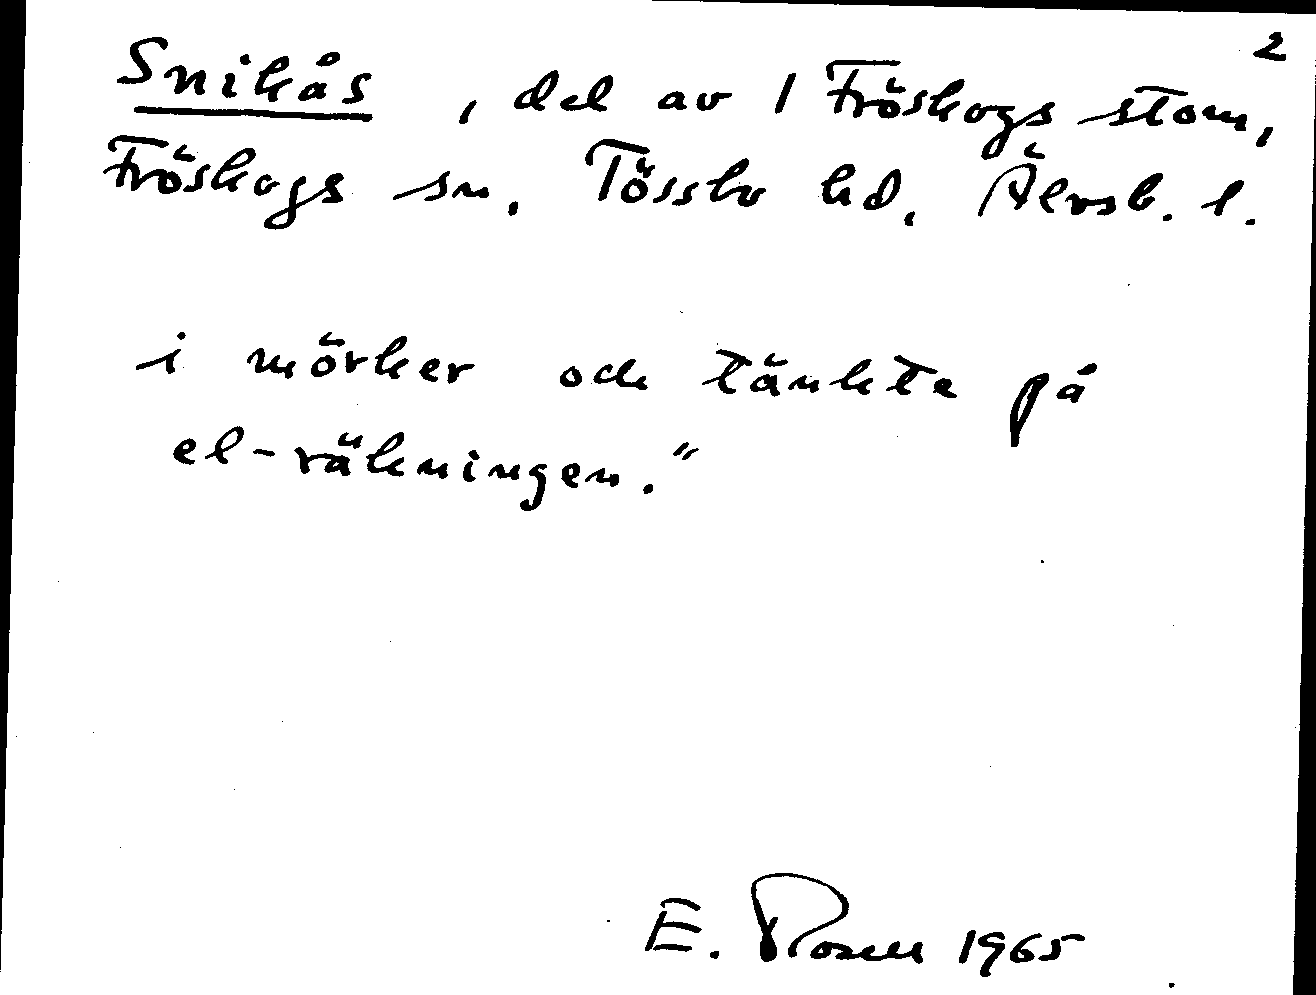 2
Snikås, del av 1 Fröskogs stom,
Fröskogs sn. Tössbo hd. Älvsb. l.
i mörker och tänkte på
el-räkningen."
E. Rosell 1965